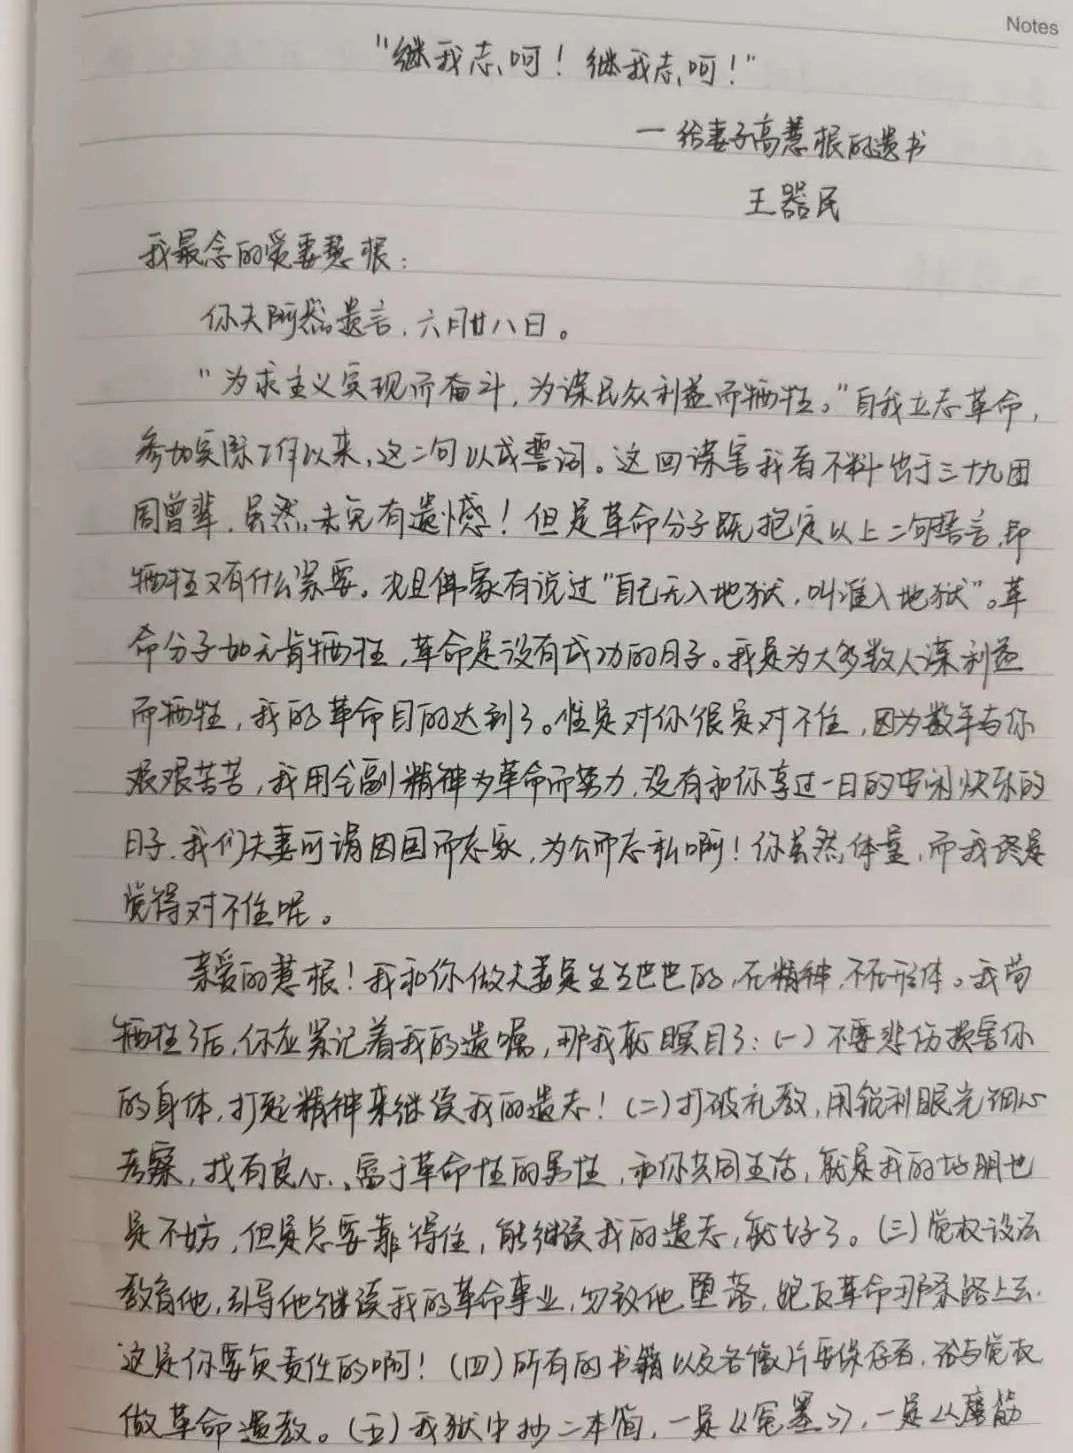 Notes
"继我志呵！继我志呵！"
一给妻子高慧根的遗书
王器民
我最念的爱妻慧根：
你夫阿器遗言，六月廿八日。
"为求主义实现而奋斗，为谋民众利益而牺牲。"自我立志革命，
参加实际工作以来，这二句以成誓词。这回谋害我者不料出于三十九团
周曾辈，虽然，未免有遗憾！但是革命分子既抱定以上二句誓言，即
牺牲又有什么紧要。况且佛家有说过"自己无入地狱，叫谁入地狱"。革
命分子如无肯牺牲，革命是没有成功的日子。我是为大多数人谋利益
而牺牲，我的革命目的达到了。惟是对你很是对不住，因为数年与你
艰艰苦苦，我用全副精神为革命而努力，没有和你享过一日的安闲快乐的
日子，我们夫妻可谓因国而忘家，为公而忘私啊！你虽然体量，而我终是
觉得对不住呢。
亲爱的慧根！我和你做夫妻是生生世世的，在精神，不在形体。我苟
牺牲了后，你应紧记着我的遗嘱，那我就瞑目了：（一）不要悲伤损害你
的身体，打起精神来继续我的遗志！（二）打破礼教，用锐利眼光细心
考察，找有良心、富于革命性的男性，和你共同生活，就是我的好朋也
是不妨，但是总要靠得住，能继续我的遗志，就好了。（三）觉权设法
教育他，引导他继续我的革命事业，勿致他堕落，跑反革命那条路上去，
这是你要负责任的啊！（四）所有的书籍以及各像片要保存着，给与觉权
做革命遗教。（五）我狱中抄二本簿，一是《冤墨》，一是《磨筋